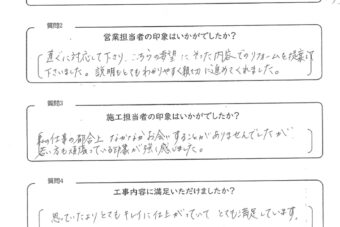 質問2
営業担当者の印象はいかがでしたか?
直ぐに対応して下さり、こちらの希望にそった内容でのリフォームを提案して
下さいました。説明もとてもわかりやすく親切に進めてくれました。
質問3
施工担当者の印象はいかがでしたか?
私の仕事の都合上なかなかお会いすることがありませんでしたが
頑張っている印象が強く感じました。
質問4
工事内容に満足いただけましたか?
思っていたよりとてもキレイに仕上がっていてとても満足しています。